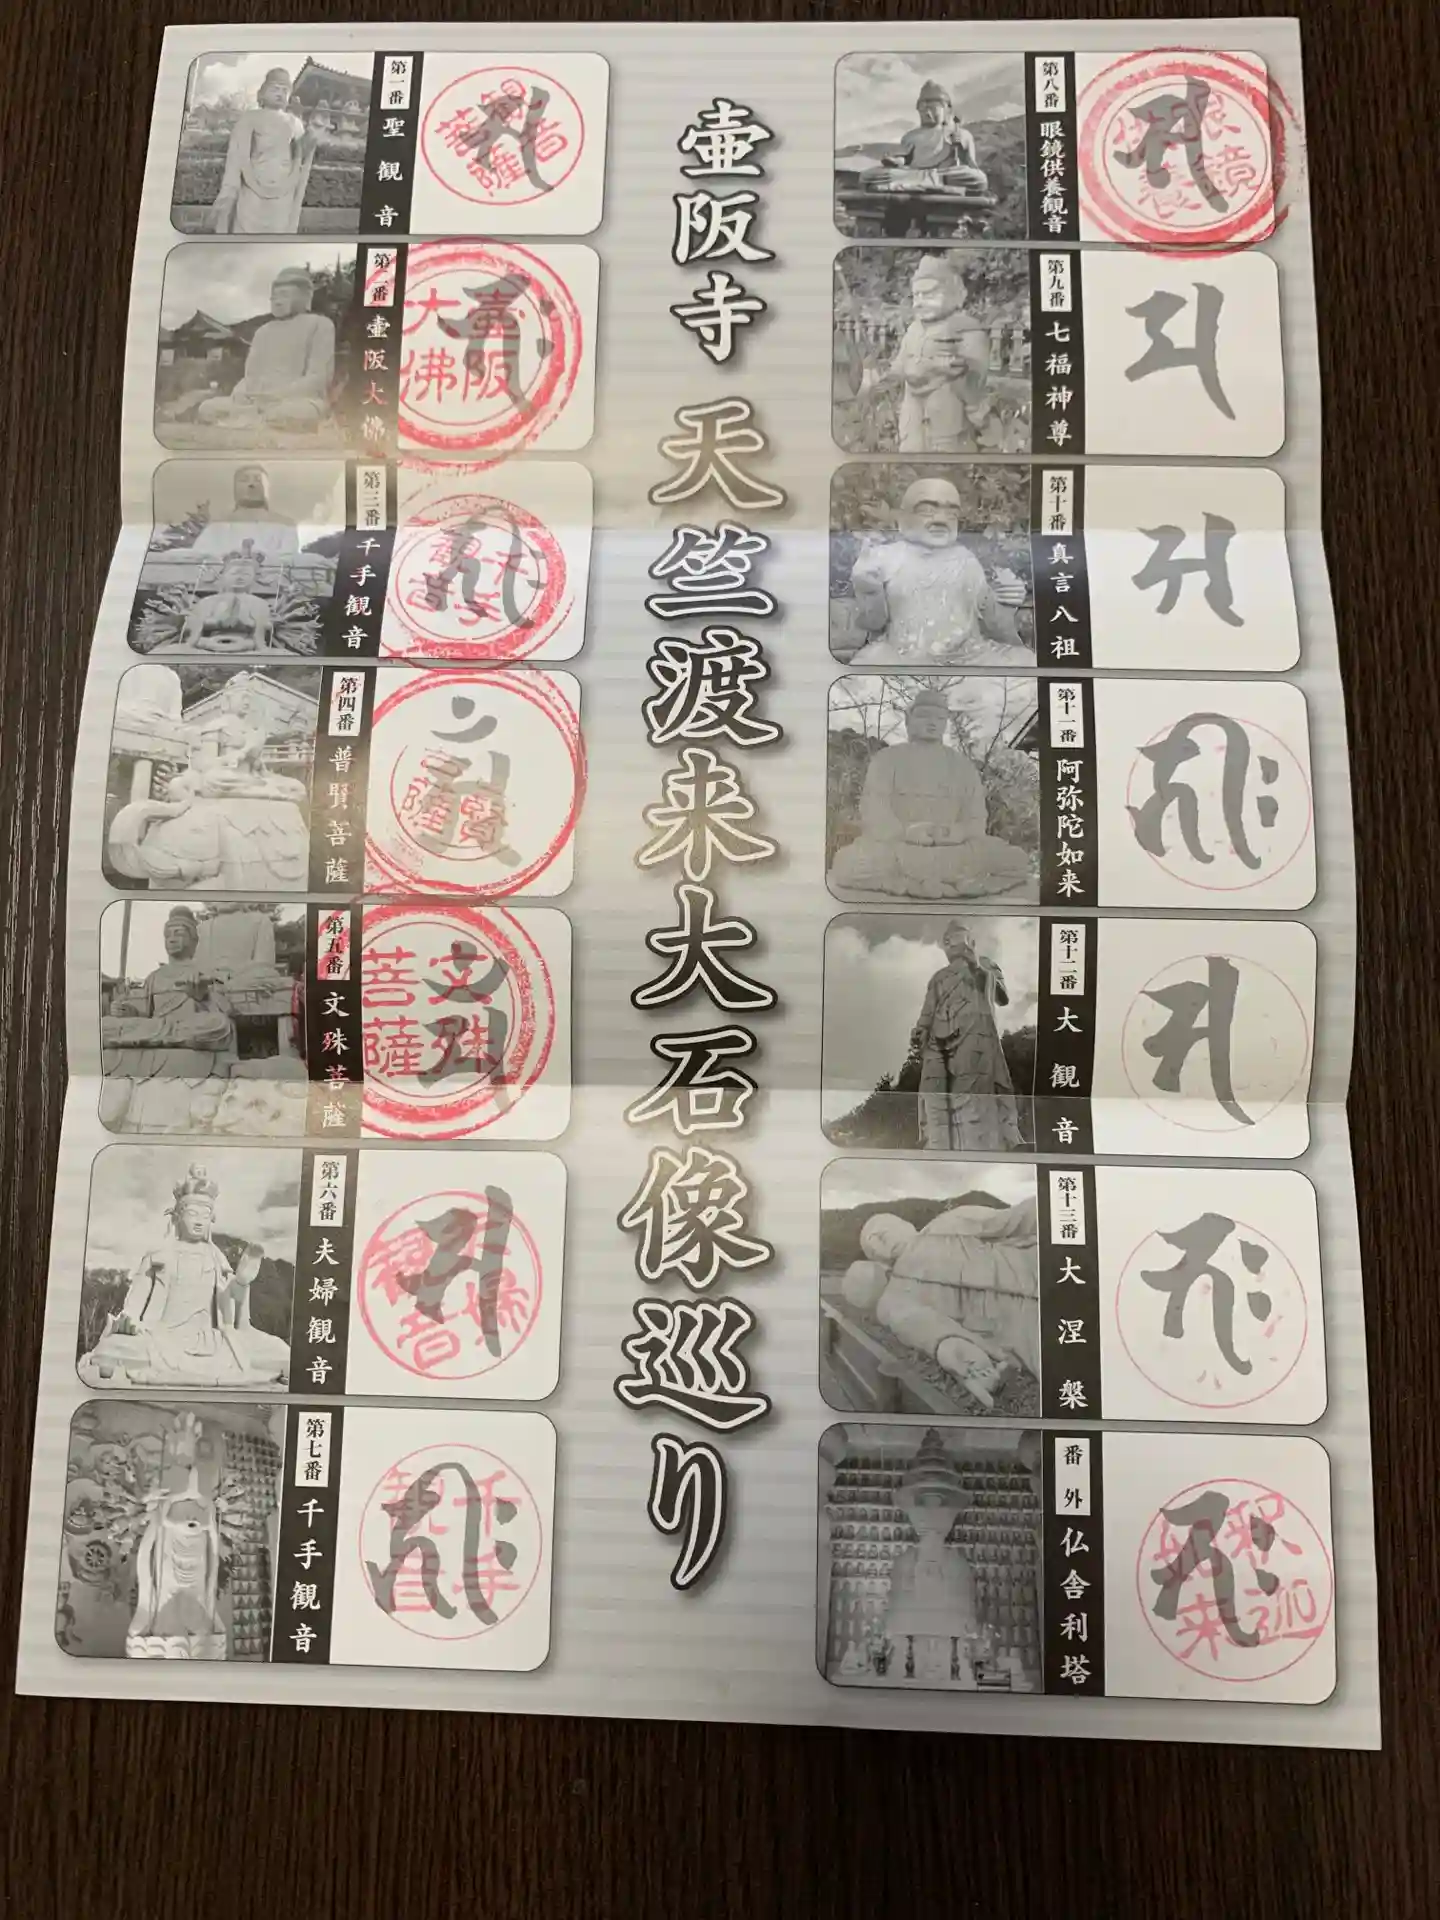 壷阪寺 天竺渡来大石像巡り
第一番 聖観音
観音菩薩
第二番 壷阪大佛
壷阪大佛
第三番 千手観音
第四番 普賢菩薩
賢菩薩
第五番 文殊菩薩
文殊菩薩
第六番 夫婦観音
夫婦観音
第七番 千手観音
千手観音
第八番 眼鏡供養観音
眼鏡供養
第九番 七福神尊
第十番 真言八祖
第十一番 阿弥陀如来
第十二番 大観音
第十三番 大涅槃
番外 仏舎利塔
釈迦如来